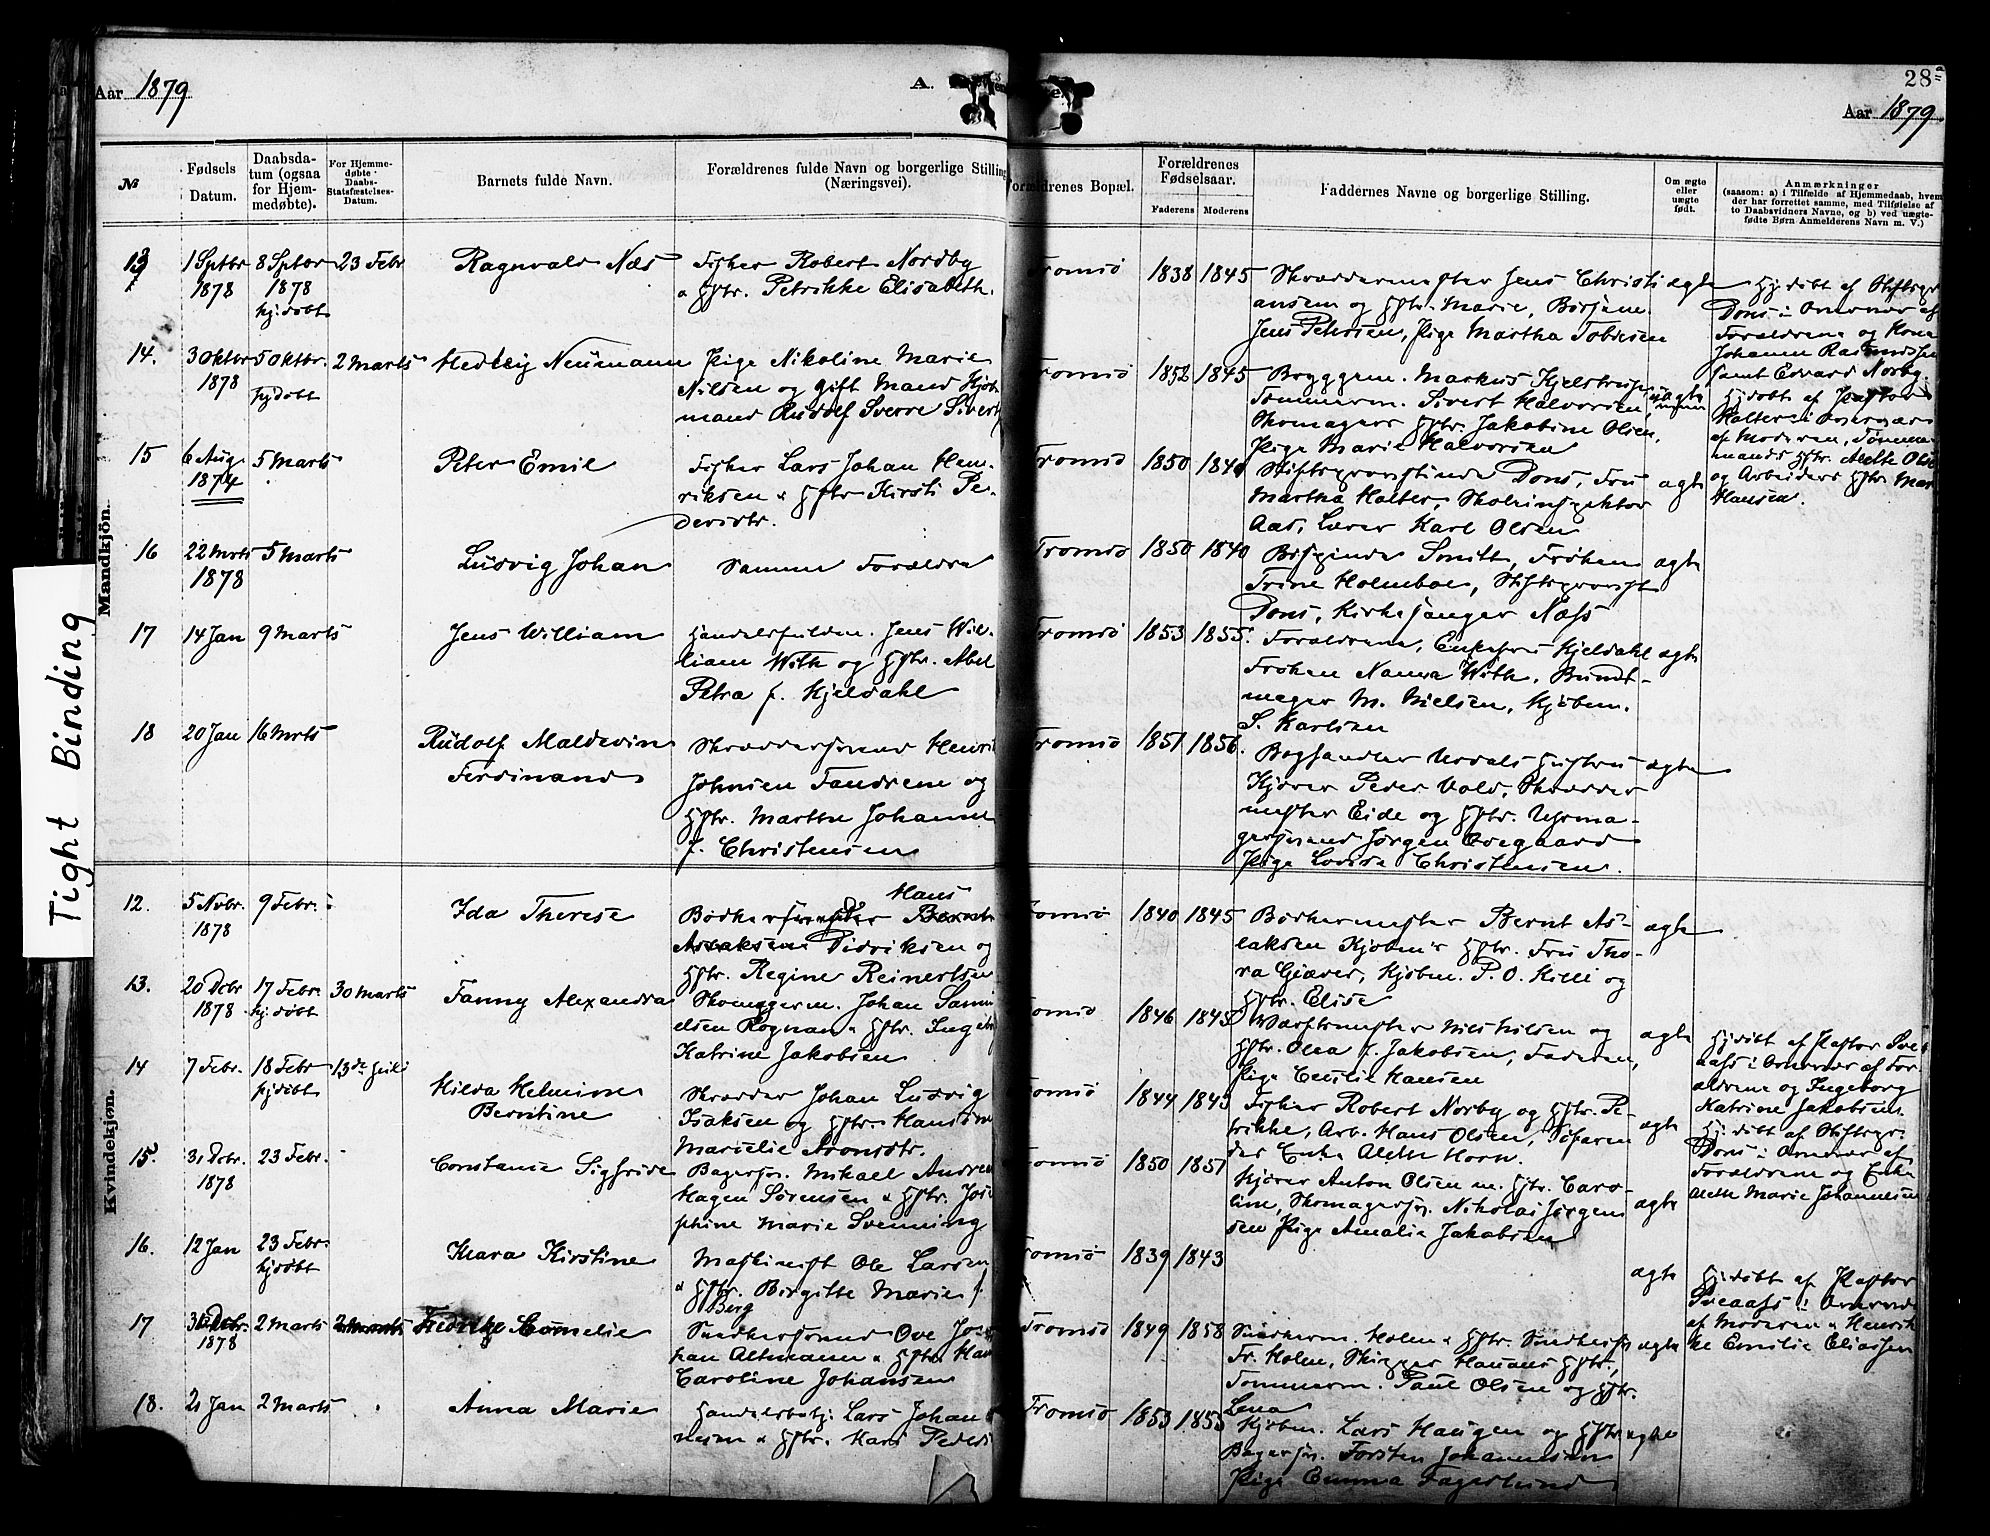 Aar 1879
A.
28
Aar 1879
№
Fødsels
Datum.
Daabsda-
tum (ogsaa
for Hjem-
medøbte).
For Hjemme-
døbte
Daabs-
Statsfæstelses-
Datum.
Barnets fulde Navn.
Forældrenes fulde Navn og borgerlige Stilling
(Næringsvei).
Forældrenes Bopæl.
Forældrenes
Fødselsaar.
Faderens
Moderens
Faddernes Navne og borgerlige Stilling.
Om ægte
eller
uægte
født.
Anmærkninger
(saasom: a) i Tilfælde af Hjemmedaab, hvem
der har forrettet samme, med Tilføielse af
to Daabsvidners Navne, og b) ved uægte-
fødte Børn Anmelderens Navn m. V.)
Mandkjön.
13
1 Sptbr
1878
8 Sptbr
1878
hj. døbt
23 Febr
Ragnvald Næs
Fisker Robert Nordby
& Hstr. Petrikke Elisabeth.
Tromsö
1838
1845
Skræddermester Jens Christi
ansem og Hstr. Marie,
Jens Petersen, Pige Martha Tobiesen
ægte
Hj. döbt af Stiftspr.
Dons i Overvær af
Forældrene og Kone
Johanne
samt Edvard Norby
14.
3 Oktbr
1878
5 Oktbr.
hjdøbt
2 Marts
Hedvig Neumann
Pige Nikoline Marie
Nilsen og gift Mand Kjöb-
mand Rudolf Sverre Sivert
Tromsö
1852
1845
Bryggem. Markus Kjelstrup,
Tømmerm. Sivert Halvorsen,
Skomager Hstr. Jakobine Olsen,
Pige Marie Halvorsen
uægte
Hjdöbt af Pastor
Holter i Overvær
af Moderen, Tömmer-
mands Hstr.
og Arbeiders Hstr.
Hansen.
15
6 Aug
1874
5 Marts
Peter Emil
Fisker Lars Johan Hen-
riksen & Hstr Kirsti Pe-
dersdtr.
Tromsö
1850
1840
Stiftsprovstinde Dons, Fru
Martha Holter, Skoleinspektør
Aas, Lærer Karl Olsen
ægte
16
22 Mrts
1878
5 Marts
Ludvig Johan
Samme Forældre
Tromsö
1850
1840
Bispinde Smitt, Fröken
Trine Holmboe, Stiftsprovst
Dons, Kirkesanger Næss
ægte
17
14 Jan
9 Marts
Jens William
Handelsfuldm. Jens Wil-
liam With og Hstr. Abel
Petra f. Kjeldahl
Tromsö
1853
1855.
Forældrene, Enkefru Kjeldahl
Fröken Nanna With, Bundt-
mager M. Nielsen, Kjøbm.
S. Karlsen
ægte
18
20 Jan
16 Mrts
Rudolf Maldevin
Ferdinand
Skræddersvend Henrik
Johnsen Tandrene og
Hstr. Marthe Johanne
f. Christensen
Tromsö
1851
1856.
Boghandler Urdals Hustru
Kjører Peder Vold, Skrædder
mester Eide og Hstr. Urma-
gersvend Jørgen Overgaard
Pige Lovise Christensen.
ægte
Kvindekjøn.
12.
5 Nvbr.
1878
9 Febr.
Ida Therese
Hans
Bødker
Aslaksen Didriksen og
Hstr. Regine Reinertsen
Tromsö
1840
1845
Bødkermester Bernt As-
laksen Kjøbm's Hstr. Fru Tho-
ra Giæver, Kjöbm. P. O. Killi og
Hstr. Elise
ægte
13.
20 Dcbr
1878
17 Febr.
hj. döbt
30 Marts
Fanny Alexandra
Skomagerm. Johan Samu
elsen Rognan & Hstr. Ingebor
Katrine Jakobsen
Tromsö
1846
1845
Værftsmester Nils Nilsen og
Hstr. Olea f. Jakobsen, Faderen,
Pige Cecilie Hansen
ægte
Hjdöbt af Pastor Sve
aass i Overvær af For
ældrene og Ingeborg
Katrine Jakobsen
14
7 Febr.
18 Febr
hjdöbt
13de Juli
Hilda Helmine
Berntine
Skrædder Johan Ludvig
Isaksen og Hstr. Hansine
Marielie Aronsdtr.
Tromsö
1844
1843
Fisker Robert Norby og Hstr. Pe-
trikke, Arb. Hans Olsen, Sofaren
des Enke Aleth Horn.
ægte
Hj. döbt af Stiftspr.
Dons i Overvær af
Forældrene og Enke
Aleth Marie Johannesen
15.
31 Dcbr.
1878
23 Febr.
Constance Sigfride
Bagersv. Mikael Andreas
Hagen Sørensen & Hstr. Jose
phine Marie Svenning
Tromsö
1850
1851
Kjører Anton Olsen m. Hstr. Caro-
line, Skomagersv. Nikolai Jørgen
sen Pige Amalie Jakobsen
ægte
16.
12 Jan
23 Febr.
hjdöbt
Klara Kirstine
Maskinist Ole Larsen
& Hstr. Birgitte Marie f.
Berg
Tromsö
1839
1843
ægte
Hjdöbt af Pastor
Sveaass i Overvær
af Moderen & Henrik
ke Emilie Eliassen
17
31 Dcbr.
1878
2 Marts
2 Marts
Fredrikke Cornelie
Snedkersvend Ove Jo
han Altmann & Hstr. Han
Caroline Johansen
Tromsö
1849
1858
Snedkerm. Holm & Hstr. Snedkersv.
Fr. Holm, Skipper Hstr,
Tømmerm. Paul Olsen og Hstr.
Lena
ægte
18.
2 Jan
2 Marts
Anna Marie
Handelsbetj. Lars Johan
& Hstr. Kari Peders
Tromsö
1853
1855
Kjöbm. Lars Haugen og Hstr
Bagersv. Torsten Johannesen
Pige Emma Fagerlund
ægte
Tight Binding